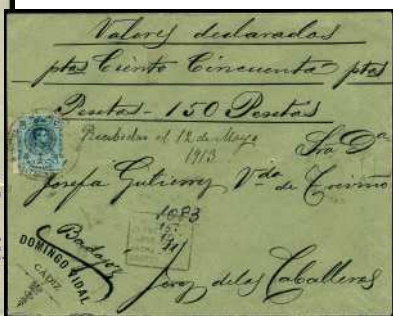 Valores declarados
ptas Ciento Cincuenta ptas
Pesetas - 150 Pesetas
Recibidas el 12 de Mayo
1913
Sra Dª
Josefa Gutierrez Vda de Treviño
1083
Badajoz
DOMINGO VIDAL
CADIZ
Jerez de los Caballeros